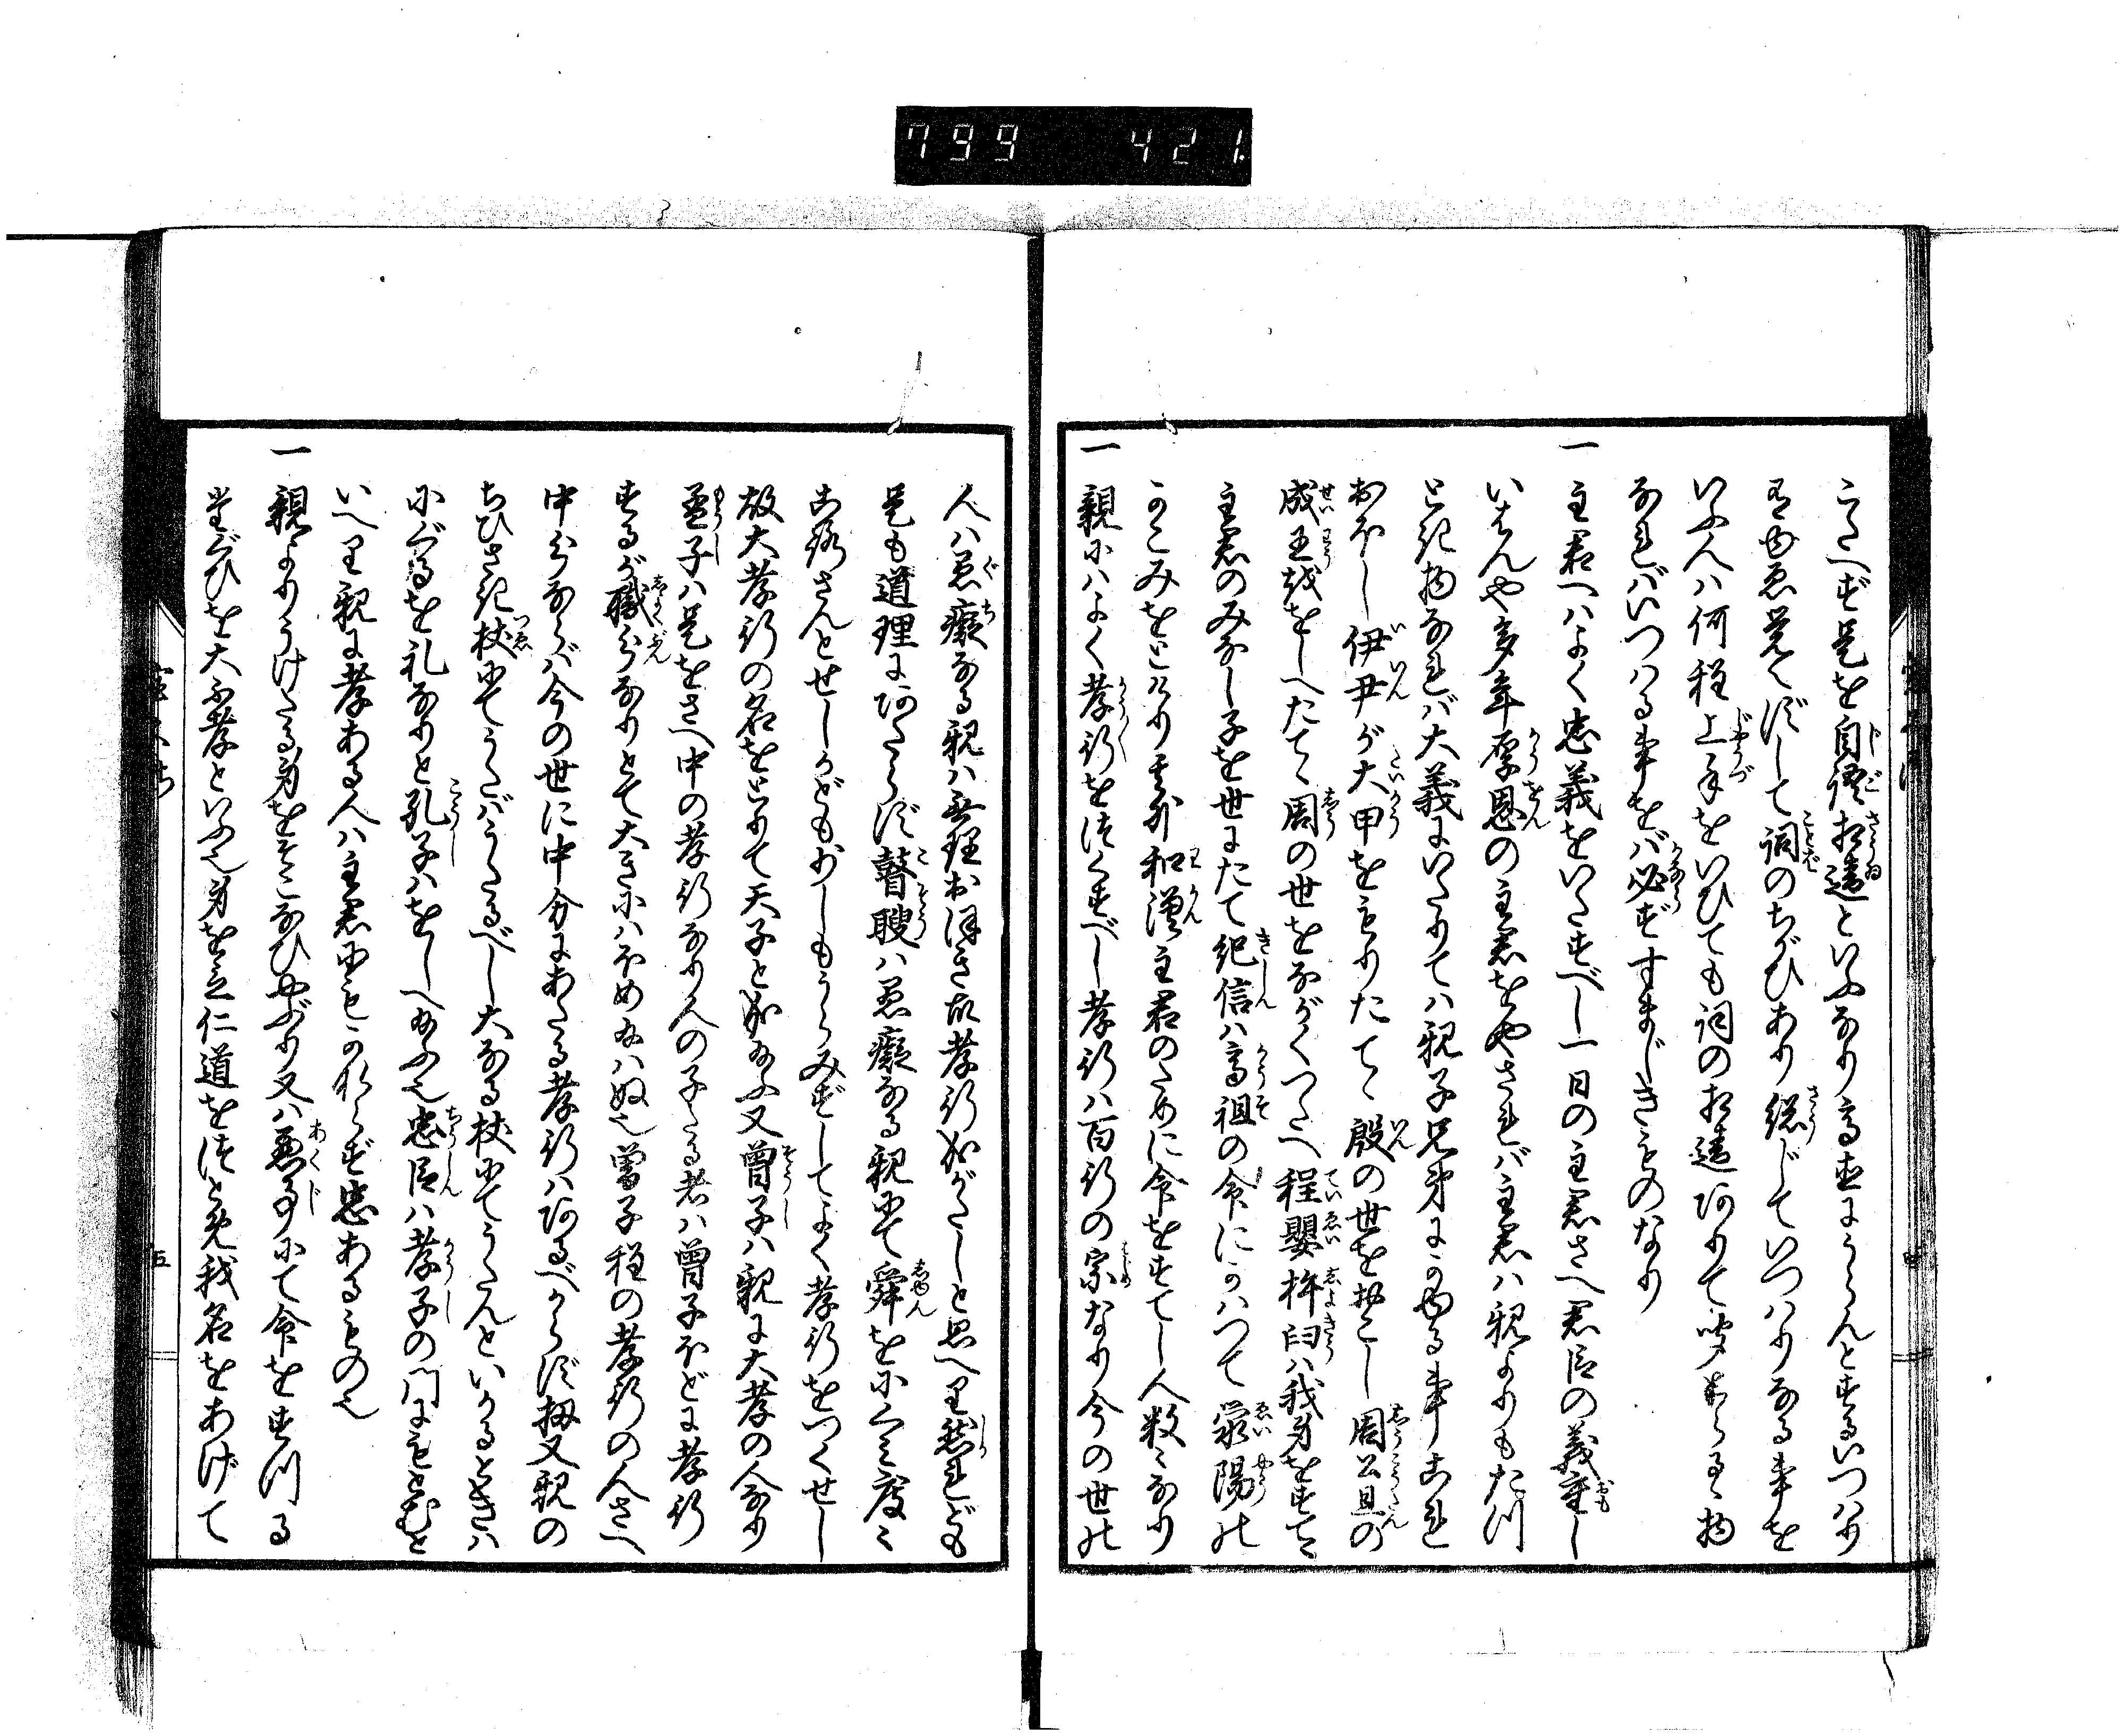 799 421
こたへず是を自語相違といふなり高直にうらんとするいつハり
を由ゑ覚へずして詞のちがひあり総じていつハりなる事を
いふ人ハ何程上手をいひても詞の相違ありて聞あらるゝ物
なればいつハる事をバ必ずすまじきものなり
一 主君へハよく忠義をいたすべし一日の主君さへ君臣の義重し
いはんや多年厚恩の主君をやされバ主君ハ親よりもたつ
とき物なれバ大義にいたりてハ親子兄弟にかゆる事あれ
おほし伊尹が大甲をもりたてゝ殷の世をおこし周公旦の
成王越をしへたてゝ周の世をながくつたへ程嬰杵臼ハ我身をすてゝ
主君のみなし子を世にたて紀信ハ高祖の命にかハつて滎陽の
かこみをとけり其外和漢主君のために命をすてし人数〻なり
一 親にハよく孝行を尽くすべし孝行ハ百行の宗なり今の世の
人ハ愚癡なる親ハ無理おほき故孝行成がたしと思へり然れども
是も道理にあたらず瞽瞍ハ愚癡なる親にて舜をにくミ度〻
ころさんとせしかども少しもうらみずしてよく孝行をつくせし
故大孝行の名をとりて天子と成給ふ又曽子ハ親に大孝の人なり
孟子ハ是をさへ中の孝行なり人の子たる者ハ曽子ほどに孝行
するが職分なりとて大きにハほめ給ハぬ也曽子程の孝行の人さへ
中分ならバ今の世に中分にあたる孝行ハあるべからず扨又親の
ちひさき杖にてうたバうたるべし大なる杖にてうたんといかるときハ
にぐるを礼なりと孔子ハをしへ給ふ也忠臣ハ孝子の門にもとむと
いへり親に孝ある人ハ主君にもかならず忠あるもの也
一 親よりうけたる身をそこなひやぶり又ハ悪事にて命をすつる
たぐひを大不孝といふ也身を立仁道をつとめ我名をあげて
五